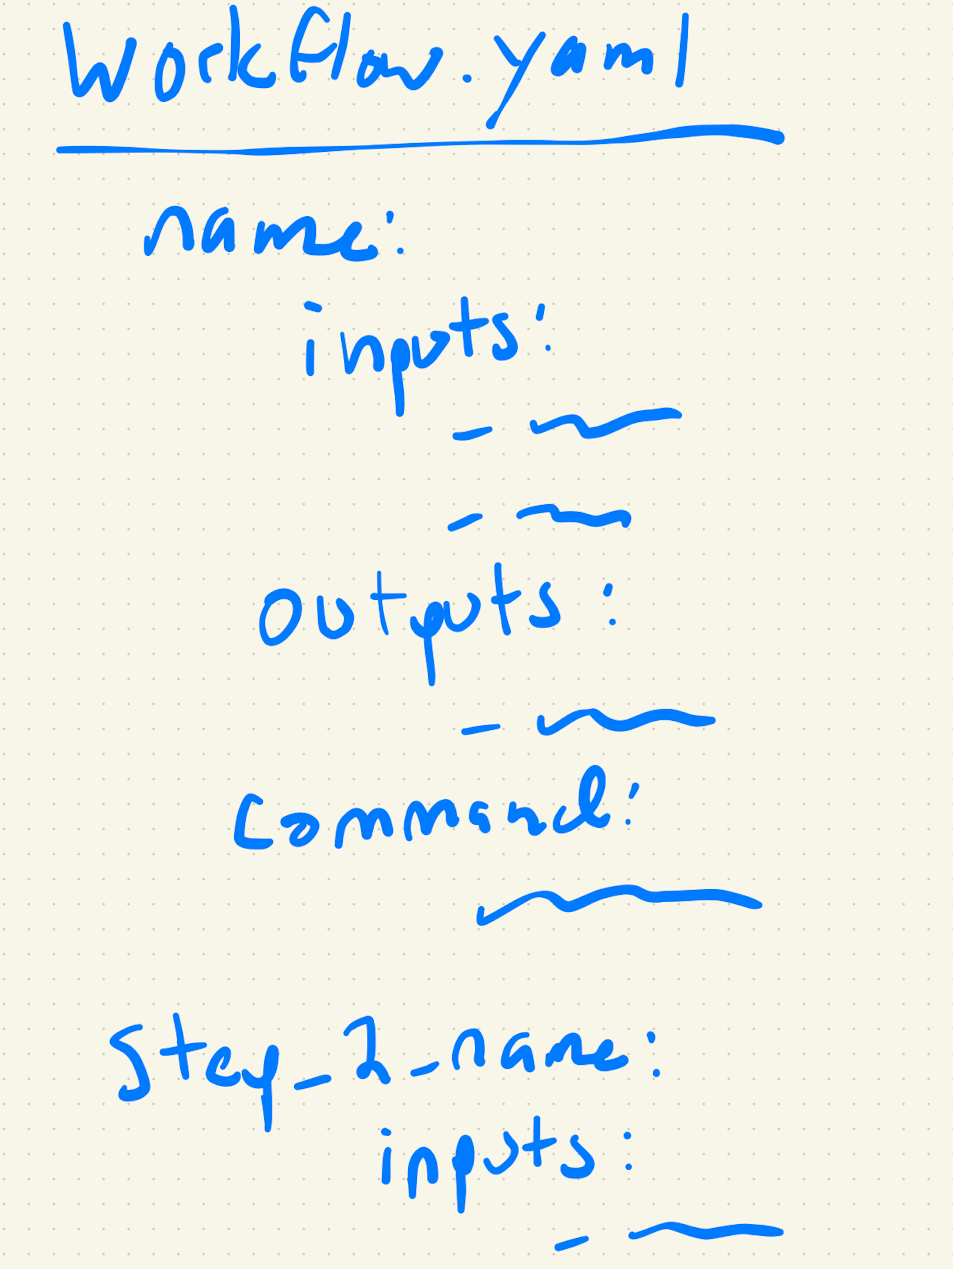 Workflow.yaml
name:
inputs:
-
-
outputs:
-
Command:
Step_2_name:
inputs:
-